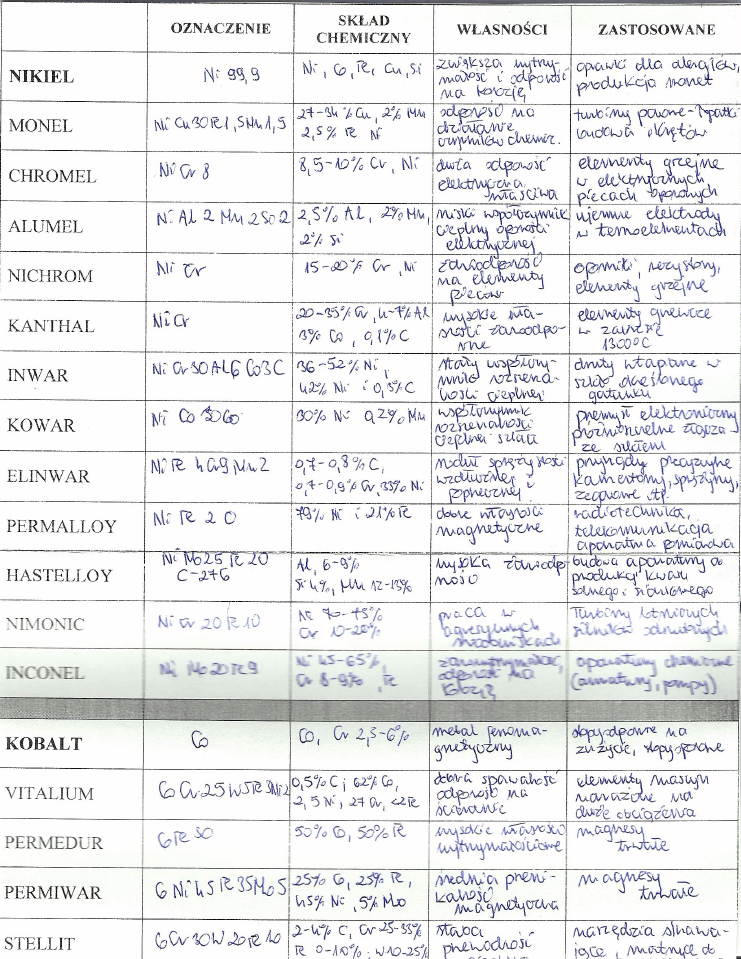 OZNACZENIE
SKŁAD
CHEMICZNY
WŁASNOŚCI
ZASTOSOWANE
NIKIEL
Ni 99,9
Ni, Co, Fe, Cu, Si
zwiększa wytrzy-
małość i odporność
na korozję
oprawki dla alergików,
produkcja monet
MONEL
Ni Cu30Fe1,5Mn1,5
27-34% Cu, 2% Mn
2,5% Fe Ni
odporność na
działanie
czynników chemicz.
turbiny parowe - łopatki
budowa okrętów
CHROMEL
Ni Cr 8
8,5-10% Cr, Ni
duża odporność
elektryczna
właściwa
elementy grzejne
w elektrycznych
piecach oporowych
ALUMEL
Ni Al 2 Mn 2 SO 2
2,5% Al, 2% Mn,
2% Si
niski współczynnik
cieplny oporności
elektrycznej
ujemne elektrody
w termoelementach
NICHROM
Ni Cr
15-20% Cr, Ni
żaroodporność
na elementy
pieców
oporniki, rezystory,
elementy grzejne
KANTHAL
Ni Cr
20-35% Cr, 4-7% Al
3% Co, 0,1% C
wysokie wła-
sności żaroodpo-
rne
elementy grzewcze
w zakresie
1300°C
INWAR
Ni Cr30Al6Co3C
36-52% Ni,
42% Ni i 0,3% C
stały współczy-
nnik rozszerza-
lności cieplnej
druty wtapiane w
szkło określonego
gatunku
KOWAR
Ni Co 30
30% Ni 0,2% Mn
współczynnik
rozszerzalności
cieplnej szkła
przemysł elektroniczny
próżnioszczelne złącza
ze szkłem
ELINWAR
Ni Fe 4Cr9Mn2
0,7-0,8% C,
0,7-0,9% Cr, 33% Ni
moduł sprężystości
wzdłużnej i
poprzecznej
przyrządy precyzyjne
kamertony, sprężyny,
zegarowe itp.
PERMALLOY
Ni Fe 20
79% Ni i 21% Fe
dobre własności
magnetyczne
radiotechnika,
telekomunikacja
aparatura pomiarowa
HASTELLOY
Ni Mo25Fe20
C-276
Al, 6-9%
Si 4%, Mn 12-13%
wysoka żaroodpo-
rność
budowa aparatury do
produkcji kwasu
solnego i siarkowego
NIMONIC
Ni Cr 20Fe10
Ni 70-75%
Cr 10-20%
praca w
agresywnych
środowiskach
Turbiny lotniczych
silników odrzutowych
INCONEL
Ni Mo20Fe9
Ni 45-65%,
Cr 8-9%, Fe
żarowytrzymałość,
odporność na
korozję
aparatury chemiczne
(armatury, pompy)
KOBALT
Co
Co, Cr 2,3-6%
metal ferroma-
gnetyczny
stopy odporne na
zużycie, stopy
VITALIUM
Co Cr25W5Fe3Ni2
0,5% C; 62% Co,
2,5 Ni, 27 Cr, <2Fe
dobra spawalność
odporność na
ścieranie
elementy maszyn
narażone na
duże obciążenia
PERMEDUR
Co Fe 50
50% Co, 50% Fe
wysokie własności
wytrzymałościowe
magnesy
trwałe
PERMIWAR
Co Ni45Fe35Mo5
25% Co, 25% Fe,
45% Ni, 5% Mo
średnia przeni-
kalność
magnetyczna
magnesy
trwałe
STELLIT
Co Cr30W20Fe10
2-4% C, Cr 25-33%
Fe 0-10%, W10-25%
słaba
przewodność
narzędzia skrawa-
jące, matryce do